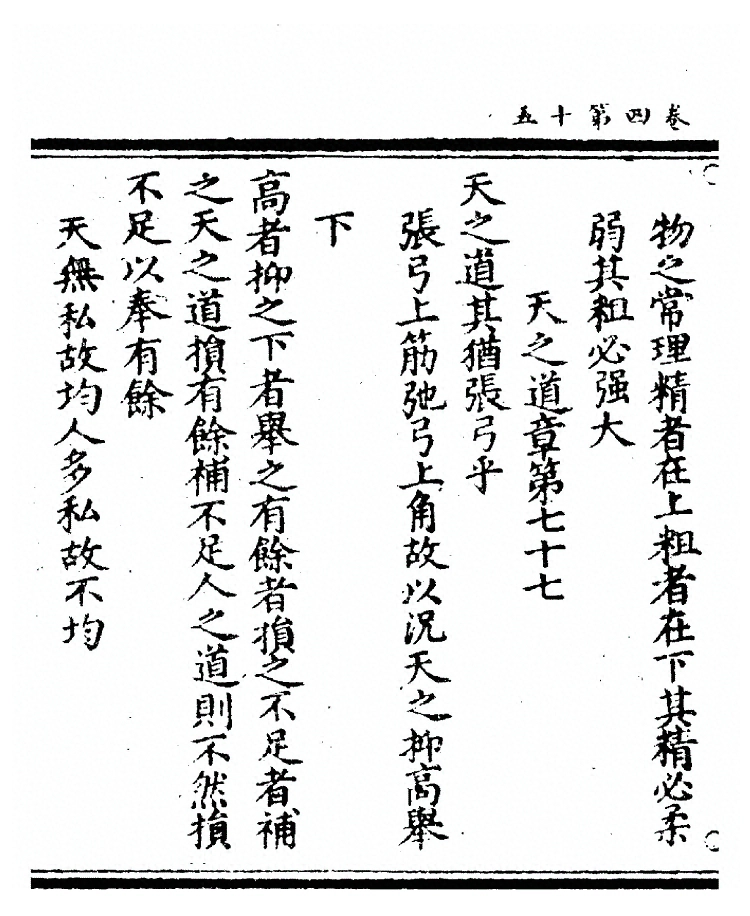 卷四第十五
物之常理精者在上粗者在下其精必柔
弱其粗必强大
天之道章第七十七
天之道其猶張弓乎
張弓上筋弛弓上角故以况天之抑高舉
下
高者抑之下者舉之有餘者損之不足者補
之天之道損有餘補不足人之道則不然損
不足以奉有餘
天無私故均人多私故不均